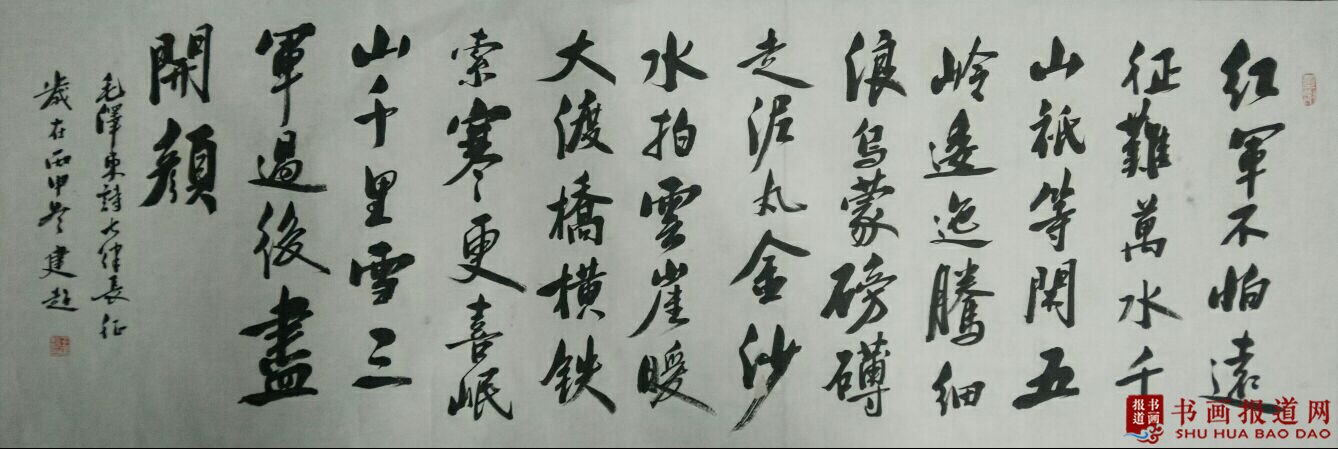 红軍不怕遠
征難萬水千
山祇等閑五
岭逶迤騰细
浪烏蒙磅礴
走泥丸金沙
水拍雲崖暖
大渡橋横铁
索寒更喜岷
山千里雪三
軍過後盡
開顔
毛澤東詩七律長征
歲在丙申冬建超
书画报道
书画报道网
SHU HUA BAO DAO